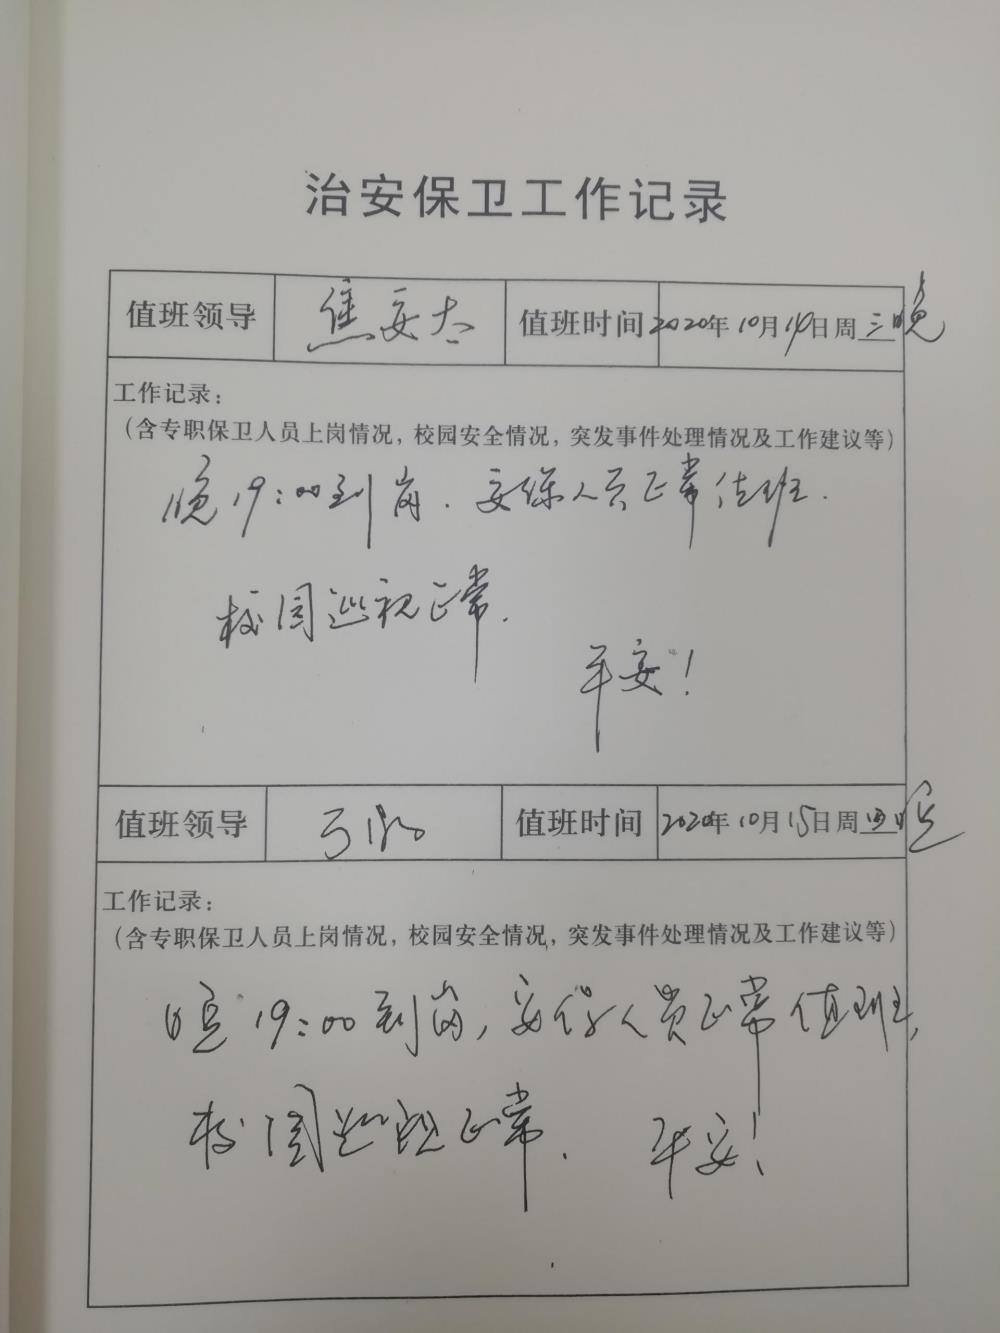 治安保卫工作记录
值班领导 焦安太 值班时间 2020年10月14日周三晚
工作记录：
（含专职保卫人员上岗情况，校园安全情况，突发事件处理情况及工作建议等）
晚19:00到岗.安保人员正常值班.
校园巡视正常.
平安!
值班领导 值班时间 2020年10月15日周四晚
工作记录：
（含专职保卫人员上岗情况，校园安全情况，突发事件处理情况及工作建议等）
晚19:00到岗,安保人员正常值班,
校园巡视正常. 平安!